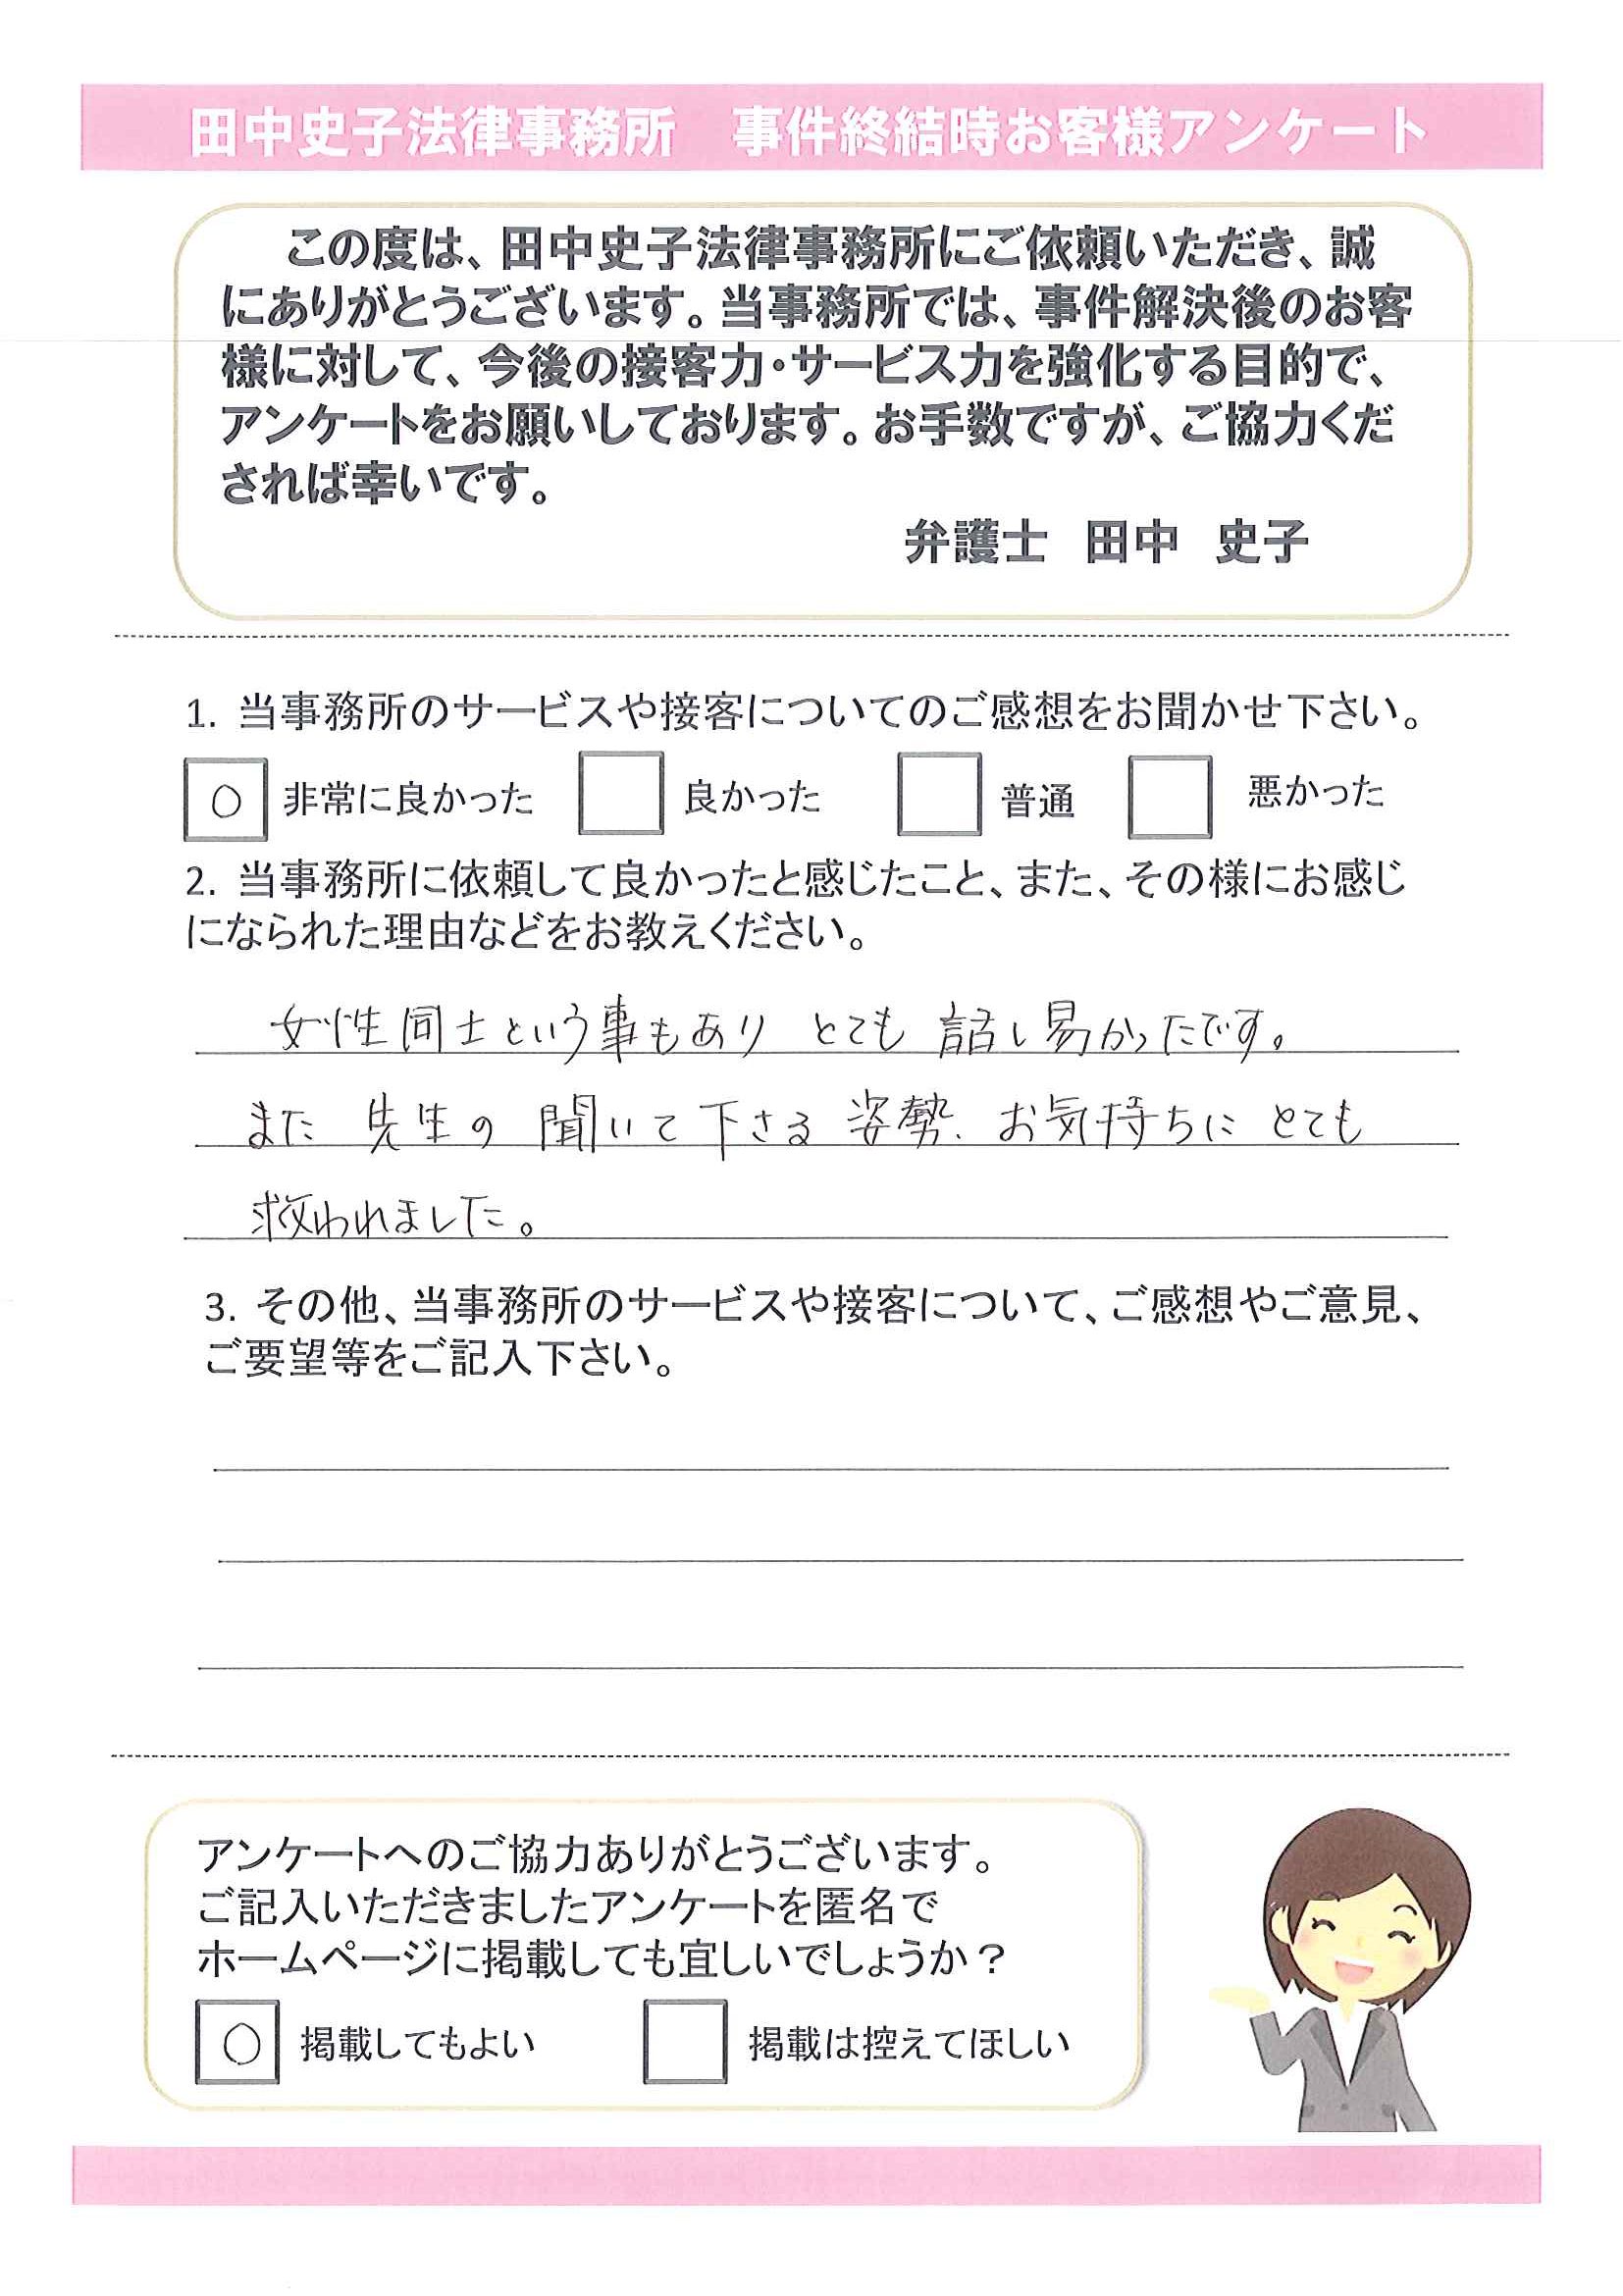 田中史子法律事務所　事件終結時お客様アンケート
この度は、田中史子法律事務所にご依頼いただき、誠
にありがとうございます。当事務所では、事件解決後のお客
様に対して、今後の接客力・サービス力を強化する目的で、
アンケートをお願いしております。お手数ですが、ご協力くだ
されば幸いです。
弁護士　田中　史子
1. 当事務所のサービスや接客についてのご感想をお聞かせ下さい。
○ 非常に良かった　良かった　普通　悪かった
2. 当事務所に依頼して良かったと感じたこと、また、その様にお感じ
になられた理由などをお教えください。
女性同士という事もあり とても 話し易かったです。
また 先生の 聞いて下さる 姿勢、お気持ちに とても
救われました。
3. その他、当事務所のサービスや接客について、ご感想やご意見、
ご要望等をご記入下さい。
アンケートへのご協力ありがとうございます。
ご記入いただきましたアンケートを匿名で
ホームページに掲載しても宜しいでしょうか？
○ 掲載してもよい　掲載は控えてほしい